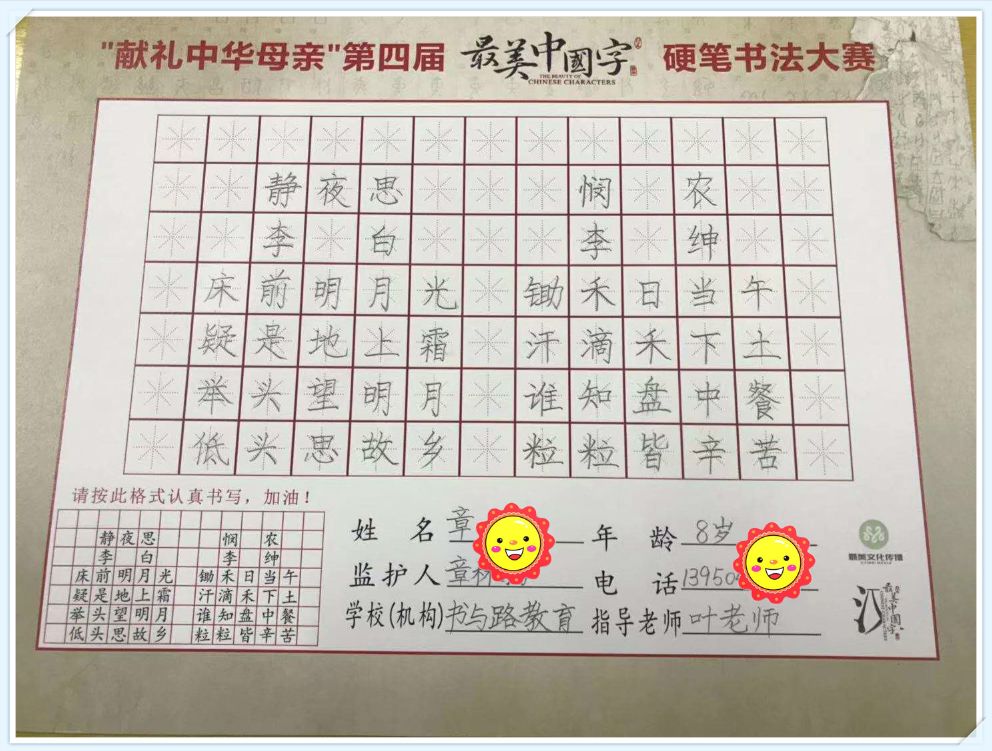 "献礼中华母亲"第四届 最美中國字 硬笔书法大赛
THE BEAUTY OF
CHINESE CHARACTERS
静夜思 悯农
李白 李绅
床前明月光 锄禾日当午
疑是地上霜 汗滴禾下土
举头望明月 谁知盘中餐
低头思故乡 粒粒皆辛苦
请按此格式认真书写，加油！
静夜思 悯农
李白 李绅
床前明月光 锄禾日当午
疑是地上霜 汗滴禾下土
举头望明月 谁知盘中餐
低头思故乡 粒粒皆辛苦
姓名 章 年龄 8岁
监护人 章 电话 13950
学校(机构) 书与路教育 指导老师 叶老师
最美文化传播
最美中國字